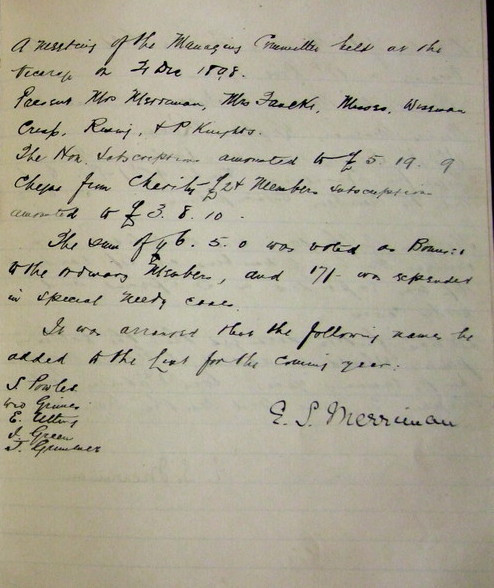 A meeting of the Managing Committee held at the
Vicarage on Dec 1898.
Present Mrs Merriman, Mrs Faulke, Messrs. Wiseman
Crisp, Rising, & P Knights.
The Hon. Subscriptions amounted to £5. 19. 9
Cheque from Charity £24 Members Subscriptions
amounted to £3. 8. 10.
The sum of 6. 5. 0 was voted as Bonus
to the ordinary Members, and 17/- was expended
in special needy cases.
It was arranged that the following names be
added to the List for the coming year:
S. Powles
Grimes
E. Utting
J. Green
J.
E. S. Merriman